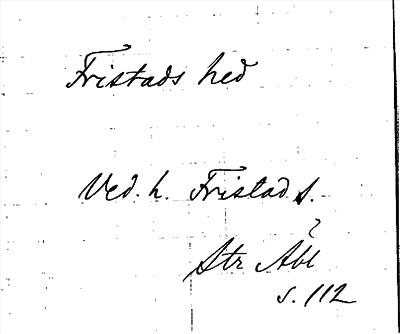 Fristads hed
Ved. h. Fristad s.
?
Str Åbl
s. 112